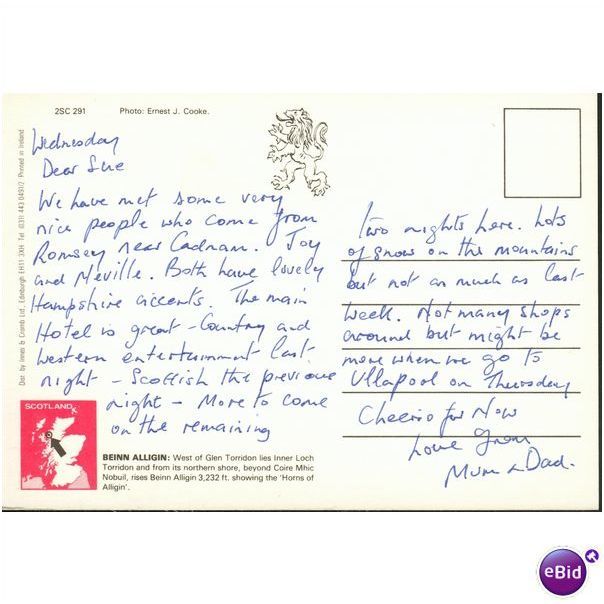 2SC 291
Photo: Ernest J. Cooke.
Dist. by Innes & Crumb Ltd., Edinburgh EH11 3XH Tel (031) 443 0491/2 Printed in Ireland
Wednesday
Dear Sue
We have met some very
nice people who come from
Romsey near Cadnam. Joy
and Neville. Both have lovely
Hampshire accents. The main
Hotel is great - Country and
Western entertainment last
night - Scottish the previous
night - More to come
on the remaining
two nights here. Lots
of snow on the mountains
but not as much as last
week. Not many shops
around but might be
more when we go to
Ullapool on Thursday
Cheerio for Now
Love from
Mum & Dad.
SCOTLAND
BEINN ALLIGIN: West of Glen Torridon lies Inner Loch
Torridon and from its northern shore, beyond Coire Mhic
Nobuil, rises Beinn Alligin 3,232 ft. showing the 'Horns of
Alligin'.
eBid